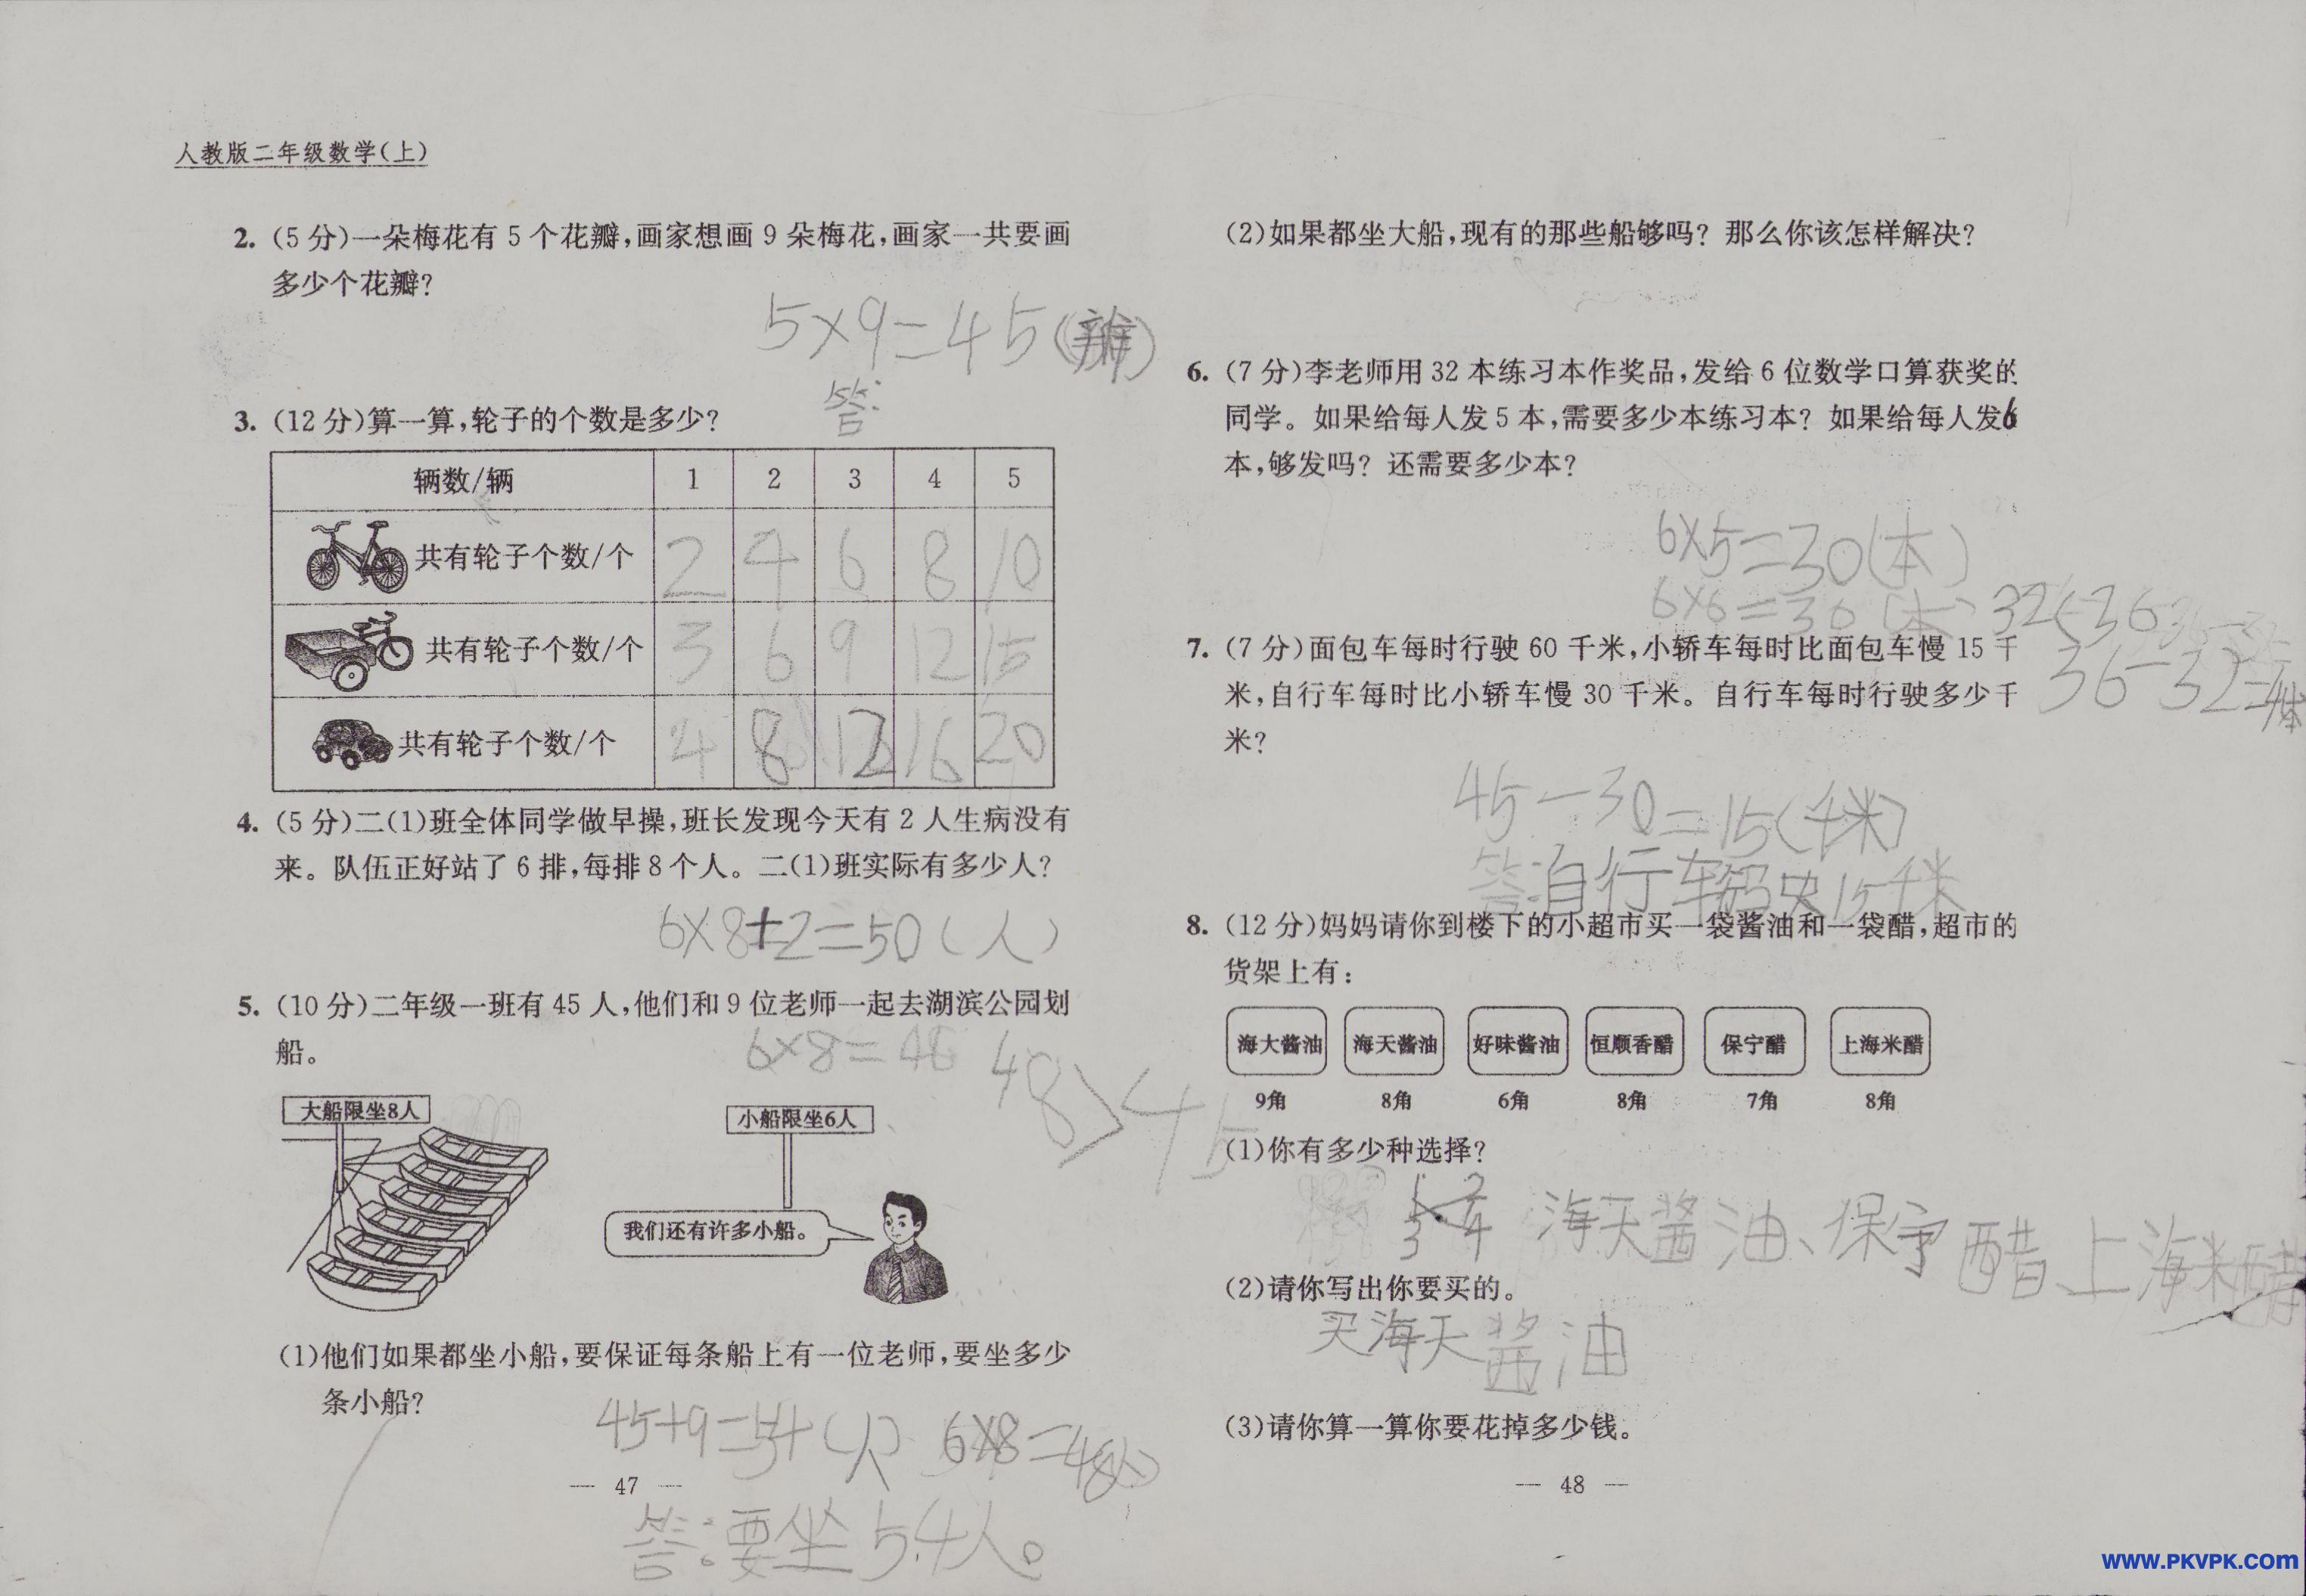 人教版二年级数学(上)
2. (5分)一朵梅花有5个花瓣,画家想画9朵梅花,画家一共要画
多少个花瓣?
5×9=45(瓣)
答:
3. (12分)算一算,轮子的个数是多少?
辆数/辆 1 2 3 4 5
共有轮子个数/个 2 4 6 8 10
共有轮子个数/个 3 6 9 12 15
共有轮子个数/个 4 8 12 16 20
4. (5分)二(1)班全体同学做早操,班长发现今天有2人生病没有
来。队伍正好站了6排,每排8个人。二(1)班实际有多少人?
6×8+2=50(人)
5. (10分)二年级一班有45人,他们和9位老师一起去湖滨公园划
船。
6×8=48
48>45
大船限坐8人
小船限坐6人
我们还有许多小船。
(1)他们如果都坐小船,要保证每条船上有一位老师,要坐多少
条小船?
45+9=54(人) 6×8=48
答:要坐54人。
— 47 —
(2)如果都坐大船,现有的那些船够吗? 那么你该怎样解决?
6. (7分)李老师用32本练习本作奖品,发给6位数学口算获奖的
同学。如果给每人发5本,需要多少本练习本? 如果给每人发6
本,够发吗? 还需要多少本?
6×5=30(本)
6×6=36(本) 32<36
36-32=4本
7. (7分)面包车每时行驶60千米,小轿车每时比面包车慢15千
米,自行车每时比小轿车慢30千米。自行车每时行驶多少千
米?
45-30=15(千米)
答:自行车 15千米
8. (12分)妈妈请你到楼下的小超市买一袋酱油和一袋醋,超市的
货架上有:
海大酱油 海天酱油 好味酱油 恒顺香醋 保宁醋 上海米醋
9角 8角 6角 8角 7角 8角
(1)你有多少种选择?
1 2
3 4 海天酱油、保宁醋 上海米醋
(2)请你写出你要买的。
买海天酱油
(3)请你算一算你要花掉多少钱。
— 48 —
www.PKVPK.com